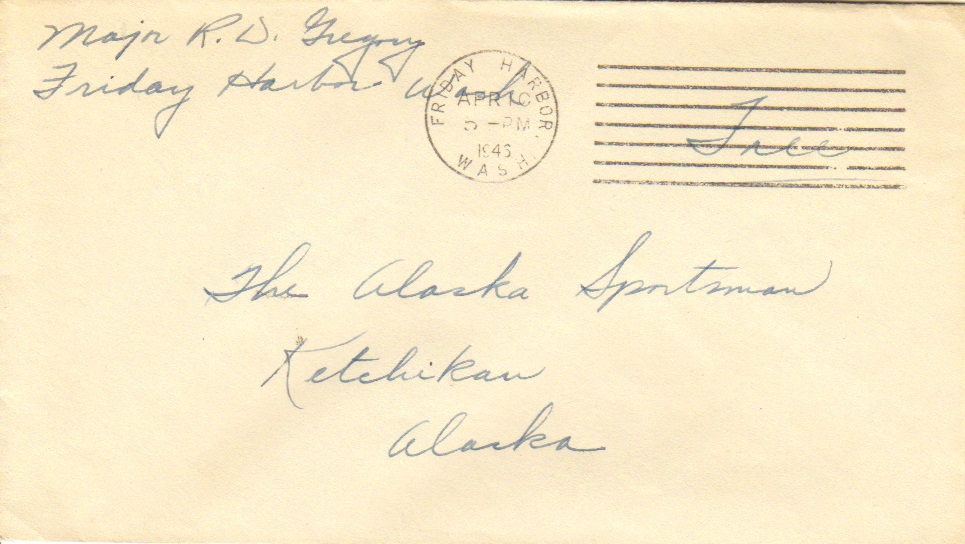 Major R. D. Gregory
Friday Harbor Wash
FRIDAY HARBOR, WASH.
APR 10
5 - PM
1946
Free
The Alaska Sportsman
Ketchikan
Alaska